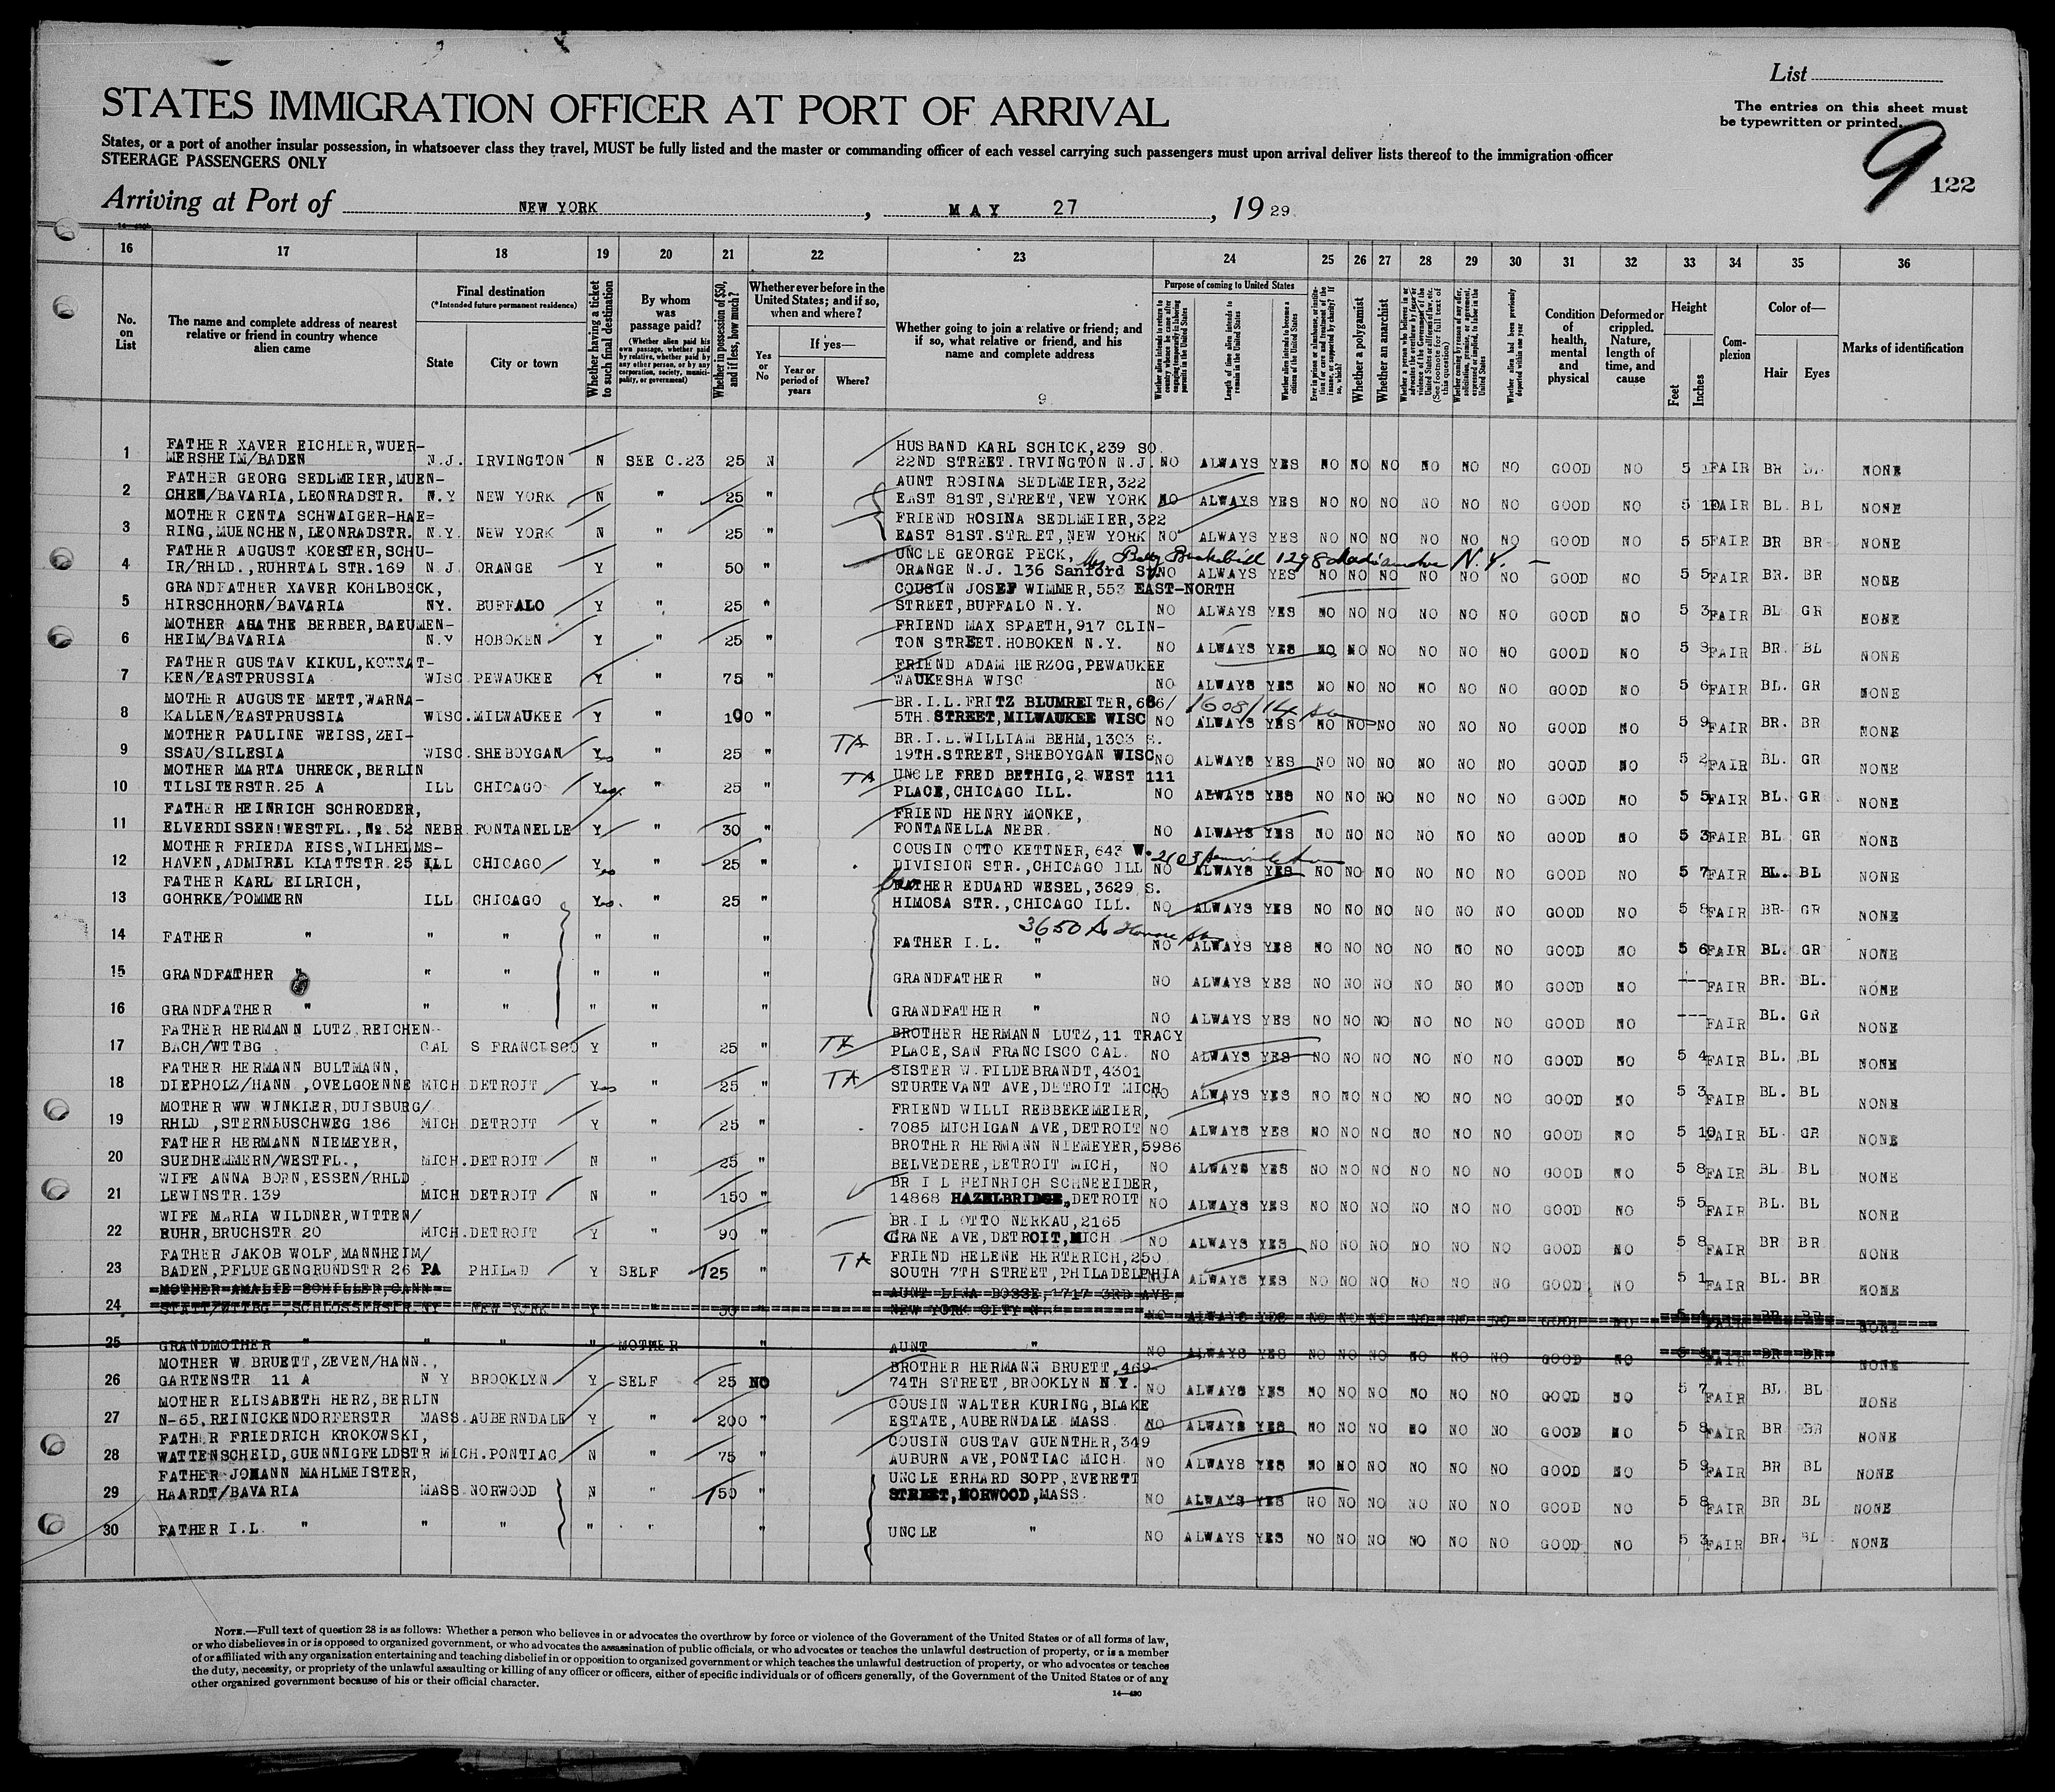 List
STATES IMMIGRATION OFFICER AT PORT OF ARRIVAL
The entries on this sheet must
be typewritten or printed.
States, or a port of another insular possession, in whatsoever class they travel, MUST be fully listed and the master or commanding officer of each vessel carrying such passengers must upon arrival deliver lists thereof to the immigration officer
STEERAGE PASSENGERS ONLY
9 122
Arriving at Port of NEW YORK, MAY 27, 1929.
16 17 18 19 20 21 22 23 24 25 26 27 28 29 30 31 32 33 34 35 36
No. on List
The name and complete address of nearest relative or friend in country whence alien came
Final destination
(*Intended future permanent residence)
State
City or town
Whether having a ticket to such final destination
By whom was passage paid?
(Whether alien paid his own passage, whether paid by relative, whether paid by any other person, or by any corporation, society, municipality, or government)
Whether in possession of $50, and if less, how much?
Whether ever before in the United States; and if so, when and where?
Yes or No
If yes—
Year or period of years
Where?
Whether going to join a relative or friend; and if so, what relative or friend, and his name and complete address
9
Purpose of coming to United States
Length of time alien intends to remain in the United States
Whether alien intends to become a citizen of the United States
Whether a polygamist
Whether an anarchist
Condition of health, mental and physical
Deformed or crippled. Nature, length of time, and cause
Height
Feet
Inches
Complexion
Color of—
Hair
Eyes
Marks of identification
1 FATHER XAVER EICHLER,WUER-
MERSHEIM/BADEN N.J. IRVINGTON N SEE C.23 25 N
HUSBAND KARL SCHICK,239 SO
22ND STREET.IRVINGTON N.J. NO ALWAYS YES NO NO NO NO NO NO GOOD NO 5 FAIR BR NONE
2 FATHER GEORG SEDLMEIER,MUEN-
CHEN/BAVARIA,LEONRADSTR. N.Y NEW YORK N " 25 "
AUNT ROSINA SEDLMEIER,322
EAST 81ST,STREET,NEW YORK NO ALWAYS YES NO NO NO NO NO NO GOOD NO 5 10 FAIR BL. BL NONE
3 MOTHER CENTA SCHWAIGER-HAE=
RING,MUENCHEN,LEONRADSTR. N.Y. NEW YORK N " 25 "
FRIEND ROSINA SEDLMEIER,322
EAST 81ST.STREET,NEW YORK NO ALWAYS YES NO NO NO NO NO NO GOOD NO 5 5 FAIR BR BR NONE
4 FATHER AUGUST KOESTER,SCHU-
IR/RHLD.,RUHRTAL STR.169 N.J. ORANGE Y " 50 "
UNCLE GEORGE PECK, N.Y.
ORANGE N.J. 136 Sanford St. NO ALWAYS YES NO NO NO NO NO NO GOOD NO 5 5 FAIR BR. BR NONE
5 GRANDFATHER XAVER KOHLBOECK,
HIRSCHHORN/BAVARIA NY. BUFFALO Y " 25 "
COUSIN JOSEF WIMMER,553 EAST-NORTH
STREET,BUFFALO N.Y. NO ALWAYS YES NO NO NO NO NO NO GOOD NO 5 3 FAIR BL GR NONE
6 MOTHER AGATHE BERBER,BAEUMEN-
HEIM/BAVARIA N.Y HOBOKEN Y " 25 "
FRIEND MAX SPAETH,917 CLIN-
TON STREET.HOBOKEN N.Y. NO ALWAYS YES NO NO NO NO NO NO GOOD NO 5 8 FAIR BR. BL NONE
7 FATHER GUSTAV KIKUL,KOTTAT-
KEN/EASTPRUSSIA WISC PEWAUKEE Y " 75 "
FRIEND ADAM HERZOG,PEWAUKEE
WAUKESHA WISC NO ALWAYS YES NO NO NO NO NO NO GOOD NO 5 6 FAIR BL. GR NONE
8 MOTHER AUGUSTE METT,WARNA-
KALLEN/EASTPRUSSIA WISC. MILWAUKEE Y " 100 "
BR.I.L.FRITZ BLUMREITER,686/ 1608/14
5TH.STREET,MILWAUKEE WISC NO ALWAYS YES NO NO NO NO NO NO GOOD NO 5 9 FAIR BR. BR NONE
9 MOTHER PAULINE WEISS,ZEI-
SSAU/SILESIA WISC. SHEBOYGAN Yes " 25 " TA
BR.I.L.WILLIAM BEHM,1303 S.
19TH.STREET,SHEBOYGAN WISC NO ALWAYS YES NO NO NO NO NO NO GOOD NO 5 2 FAIR BL. GR NONE
10 MOTHER MARTA UHRECK,BERLIN
TILSITERSTR.25 A ILL CHICAGO Yes " 25 " TA
UNCLE FRED BETHIG,2 WEST 111
PLACE,CHICAGO ILL. NO ALWAYS YES NO NO NO NO NO NO GOOD NO 5 5 FAIR BL. GR NONE
11 FATHER HEINRICH SCHROEDER,
ELVERDISSEN!WESTFL.,No.52 NEBR FONTANELLE Y " 30 "
FRIEND HENRY MONKE,
FONTANELLA NEBR. NO ALWAYS YES NO NO NO NO NO NO GOOD NO 5 3 FAIR BL GR NONE
12 MOTHER FRIEDA EISS,WILHELMS-
HAVEN,ADMIREL KLATTSTR.25 ILL CHICAGO Yes " 25 "
COUSIN OTTO KETTNER,643 W. 2103
DIVISION STR.,CHICAGO ILL NO ALWAYS YES NO NO NO NO NO NO GOOD NO 5 7 FAIR BL. BL NONE
13 FATHER KARL EILRICH,
GOHRKE/POMMERN ILL CHICAGO Yes. " 25 "
FATHER EDUARD WESEL,3629 S.
HIMOSA STR.,CHICAGO ILL. NO ALWAYS YES NO NO NO NO NO NO GOOD NO 5 8 FAIR BR- GR NONE
3650
14 FATHER " " " " " "
FATHER I.L. " NO ALWAYS YES NO NO NO NO NO NO GOOD NO 5 6 FAIR BL. GR NONE
15 GRANDFATHER " " " " " "
GRANDFATHER " NO ALWAYS YES NO NO NO NO NO NO GOOD NO --- FAIR BR. BL. NONE
16 GRANDFATHER " " " " " "
GRANDFATHER " NO ALWAYS YES NO NO NO NO NO NO GOOD NO --- FAIR BL. GR NONE
17 FATHER HERMANN LUTZ,REICHEN-
BACH/WTTBG CAL S FRANCISCO Y " 25 " TA
BROTHER HERMANN LUTZ,11 TRACY
PLACE,SAN FRANCISCO CAL. NO ALWAYS YES NO NO NO NO NO NO GOOD NO 5 4 FAIR BL. BL NONE
18 FATHER HERMANN BULTMANN,
DIEPHOLZ/HANN.,OVELGOENNE MICH DETROIT Yes " 25 " TA
SISTER W.FILDEBRANDT,4301
STURTEVANT AVE,DETROIT MICH NO ALWAYS YES NO NO NO NO NO NO GOOD NO 5 3 FAIR BL. BL NONE
19 MOTHER WW WINKLER,DUISBURG/
RHLD ,STERNBUSCHWEG 186 MICH DETROIT Y " 25 "
FRIEND WILLI REBBEKEMEIER,
7085 MICHIGAN AVE,DETROIT NO ALWAYS YES NO NO NO NO NO NO GOOD NO 5 10 FAIR BL GR NONE
20 FATHER HERMANN NIEMEYER,
SUEDHEMMERN/WESTFL., MICH. DETROIT N " 25 "
BROTHER HERMANN NIEMEYER,5986
BELVEDERE,DETROIT MICH, NO ALWAYS YES NO NO NO NO NO NO GOOD NO 5 8 FAIR BL BL NONE
21 WIFE ANNA BORN,ESSEN/RHLD
LEWINSTR.139 MICH DETROIT N " 150 "
BR I L HEINRICH SCHNEEIDER,
14868 HAZELBRIDGE,DETROIT NO ALWAYS YES NO NO NO NO NO NO GOOD NO 5 5 FAIR BL. BL NONE
22 WIFE MARIA WILDNER,WITTEN/
RUHR,BRUCHSTR 20 MICH. DETROIT Y " 90 "
BR.I L OTTO NERKAU,2165
CRANE AVE,DETROIT,MICH NO ALWAYS YES NO NO NO NO NO NO GOOD NO 5 8 FAIR BR BR NONE
23 FATHER JAKOB WOLF,MANNHEIM/
BADEN,PFLUEGENGRUNDSTR 26 PA PHILAD Y SELF 125 " TA
FRIEND HELENE HERTERICH,250
SOUTH 7TH STREET,PHILADELPHIA NO ALWAYS YES NO NO NO NO NO NO GOOD NO 5 1 FAIR BL. BR NONE
24 MOTHER AMALIE SCHILLER,CANN-
STATT/WTTBG ,SCHLOSSERSTR NY NEW YORK Y " 50 "
AUNT LINA BOSSE,1717 3RD AVE
NEW YORK CITY N. NO ALWAYS YES NO NO NO NO NO NO GOOD NO 5 4 FAIR BR BR NONE
25 GRANDMOTHER " " " " MOTHER "
AUNT " NO ALWAYS YES NO NO NO NO NO NO GOOD NO 5 FAIR BR BR NONE
26 MOTHER W.BRUETT,ZEVEN/HANN.,
GARTENSTR 11 A N Y BROOKLYN Y SELF 25 NO
BROTHER HERMANN BRUETT,469-
74TH STREET,BROOKLYN N.Y. NO ALWAYS YES NO NO NO NO NO NO GOOD NO 5 7 FAIR BL BL NONE
27 MOTHER ELISABETH HERZ,BERLIN
N-65,REINICKENDORFERSTR MASS. AUBERNDALE Y " 200 "
COUSIN WALTER KURING,BLAKE
ESTATE,AUBERNDALE MASS. NO ALWAYS YES NO NO NO NO NO NO GOOD NO 5 8 FAIR BR BR NONE
28 FATHER FRIEDRICH KROKOWSKI,
WATTENSCHEID,GUENNIGFELDSTR MICH. PONTIAC N " 75 "
COUSIN GUSTAV GUENTHER,349
AUBURN AVE,PONTIAC MICH. NO ALWAYS YES NO NO NO NO NO NO GOOD NO 5 9 FAIR BR BL NONE
29 FATHER JOHANN MAHLMEISTER,
HAARDT/BAVARIA MASS NORWOOD N " 150 "
UNCLE ERHARD SOPP,EVERETT
STREET,NORWOOD,MASS. NO ALWAYS YES NO NO NO NO NO NO GOOD NO 5 8 FAIR BR BL NONE
30 FATHER I.L. " " " " " "
UNCLE " NO ALWAYS YES NO NO NO NO NO NO GOOD NO 5 3 FAIR BR. BL NONE
NOTE.—Full text of question 28 is as follows: Whether a person who believes in or advocates the overthrow by force or violence of the Government of the United States or of all forms of law,
or who disbelieves in or is opposed to organized government, or who advocates the assassination of public officials, or who advocates or teaches the unlawful destruction of property, or is a member
of or affiliated with any organization entertaining and teaching disbelief in or opposition to organized government or which teaches the unlawful destruction of property, or who advocates or teaches
the duty, necessity, or propriety of the unlawful assaulting or killing of any officer or officers, either of specific individuals or of officers generally, of the Government of the United States or of any
other organized government because of his or their official character.
14—430